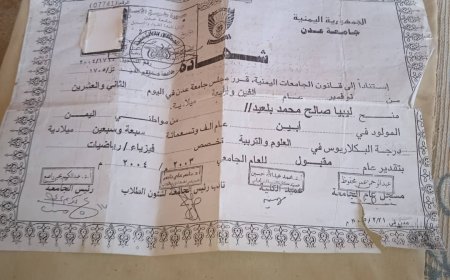 الجمهورية اليمنية
جامعة عدن
شهادة
استناداً إلى قانون الجامعات اليمنية، قرر مجلس جامعة عدن في اليوم الثاني والعشرين
من نوفمبر عام ألفين وأربعة ميلادية.
منح ليبيا صالح محمد بلعيد// من مواطني اليمن
المولود في أبين عام ألف وتسعمائة سبعة وسبعين ميلادية
درجة البكالاريوس في العلوم والتربية تخصص فيزياء/ رياضيات
بتقدير عام مقبول للعام الجامعي ٢٠٠٣ / ٢٠٠٤ م
مسجل عام الجامعة عميد الكلية نائب رئيس الجامعة لشئون الطلاب رئيس الجامعة